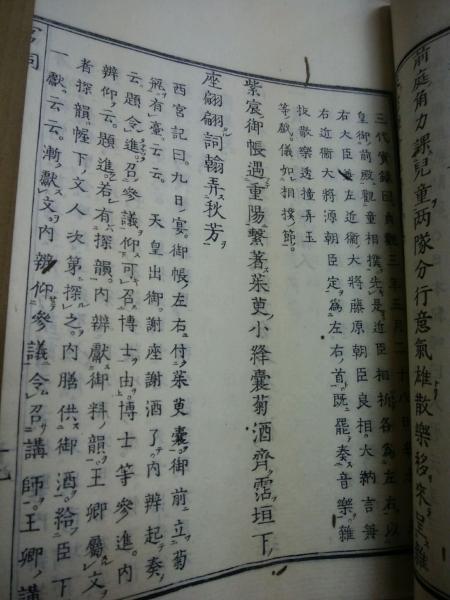 前庭角力課兒童両隊分行意氣雄散樂
三代實録曰貞觀三年
皇御前殿觀童相撲先是近臣相折各為左右以
右大臣為左近衞大將藤原朝臣良相大納言兼
右近衞大將源朝臣定為左右首既罷奏音樂雜
伎散樂透撞弄玉
等戯儀如相撲節
紫宸御帳遇重陽繫著茱萸小絳囊菊酒齊霑垣下
座翩翩詞翰弄秋芳
西宮記曰九日宴御帳左右付茱萸囊御前立菊
瓶有臺云云 天皇出御謝座謝酒了内辨起奏
云題令進召參議仰可召博士由博士等參進内
辨仰云題進若有探韻内辨獻御料韻王卿屬文
者探韻幄下文人次第探之内膳供御酒給臣下
一獻云云漸獻文内辨仰參議令召講師王卿講
宮詞